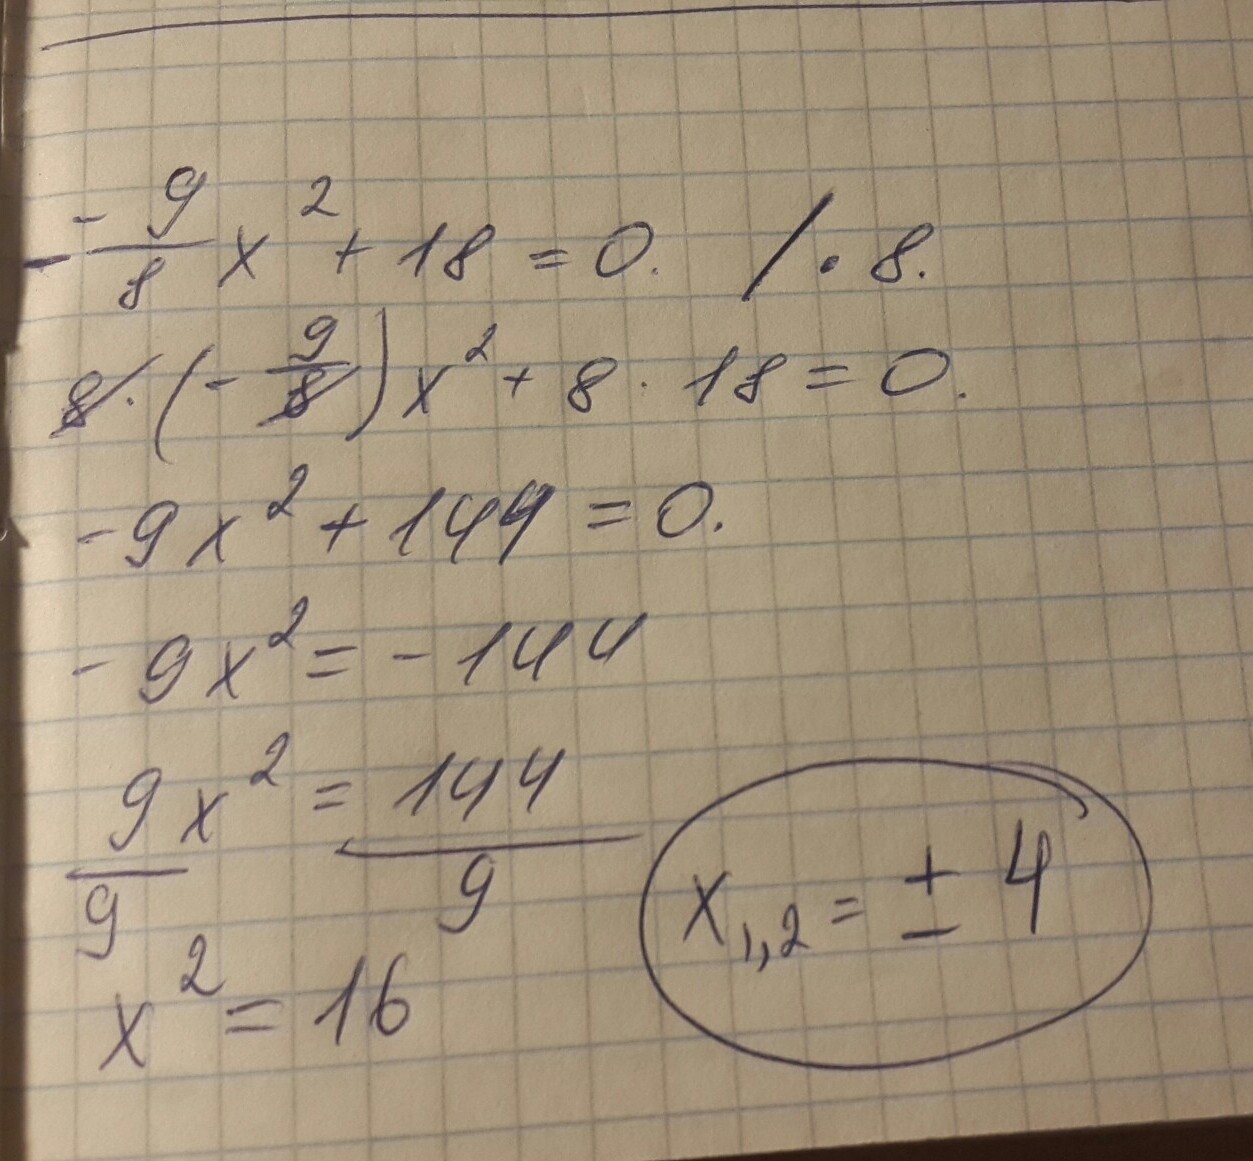 - -9/8 x² + 18 = 0. / · 8.
8 · (- 9/8) x² + 8 · 18 = 0.
-9x² + 144 = 0.
- 9x² = - 144
9x²/9 = 144/9
x² = 16
x₁,₂ = ± 4